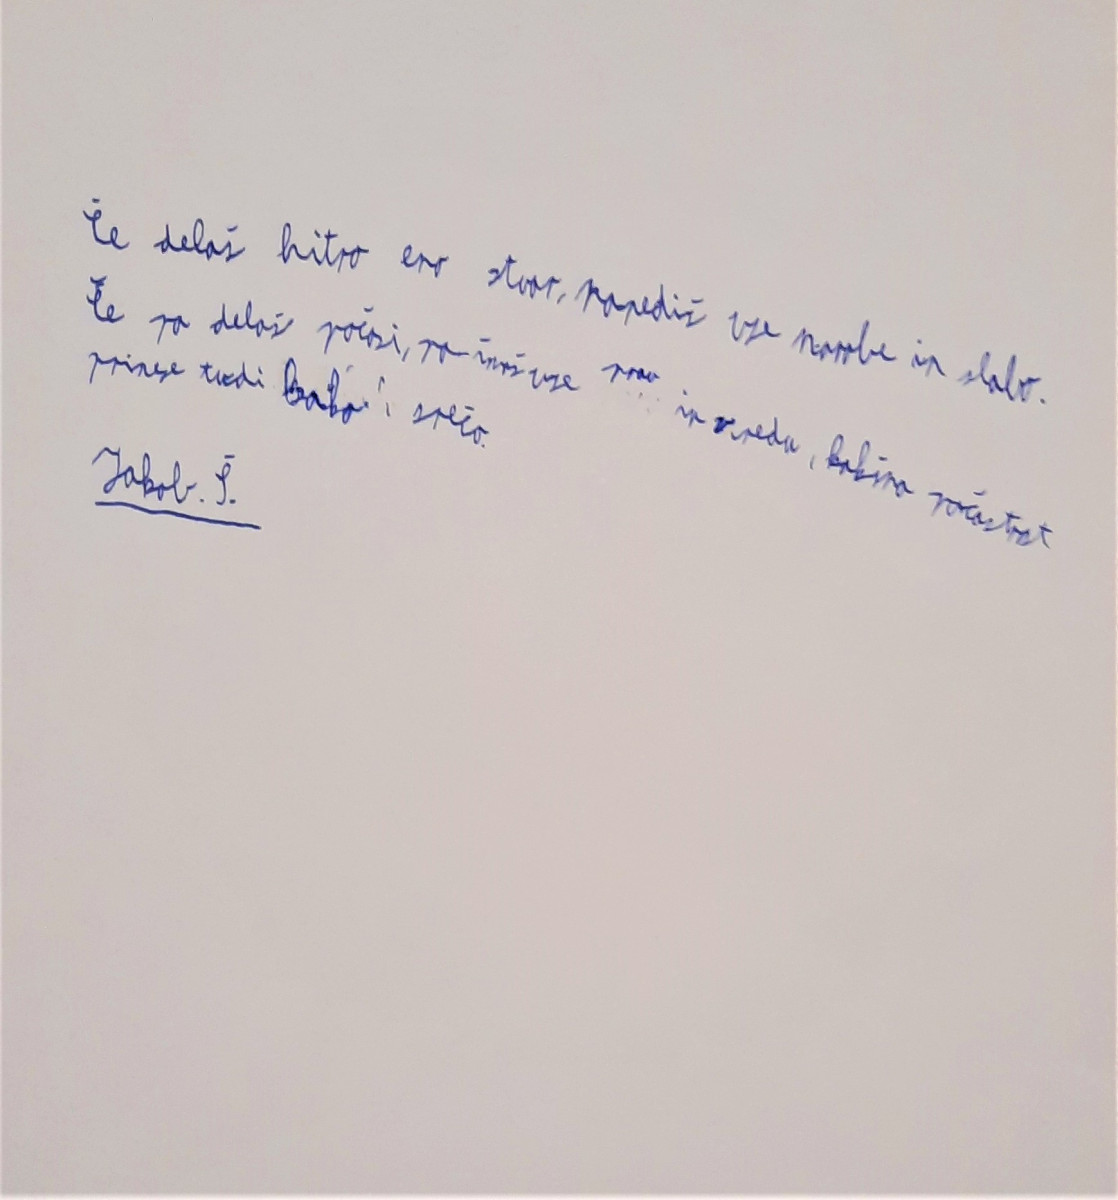 Če delaš hitro eno stvar, napediš vse narobe in slabo.
Če pa delaš počasi, pa imaš vse prav in vredu, kakšna počastnst
prinese tudi kakš i srečo.
Jakob. Š.